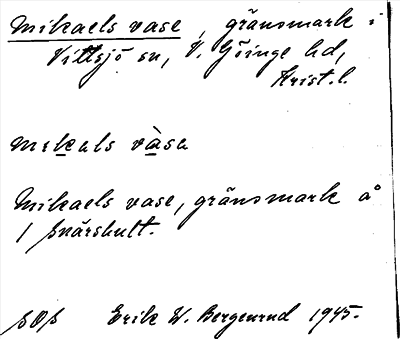 Mikaels vase, gränsmark i
Vittsjö sn, V. Göinge hd,
Krist. l.
mekals vàsa
Mikaels vase, gränsmark å
1 Snärshult.
SOS Erik W. Bergenrud 1945.